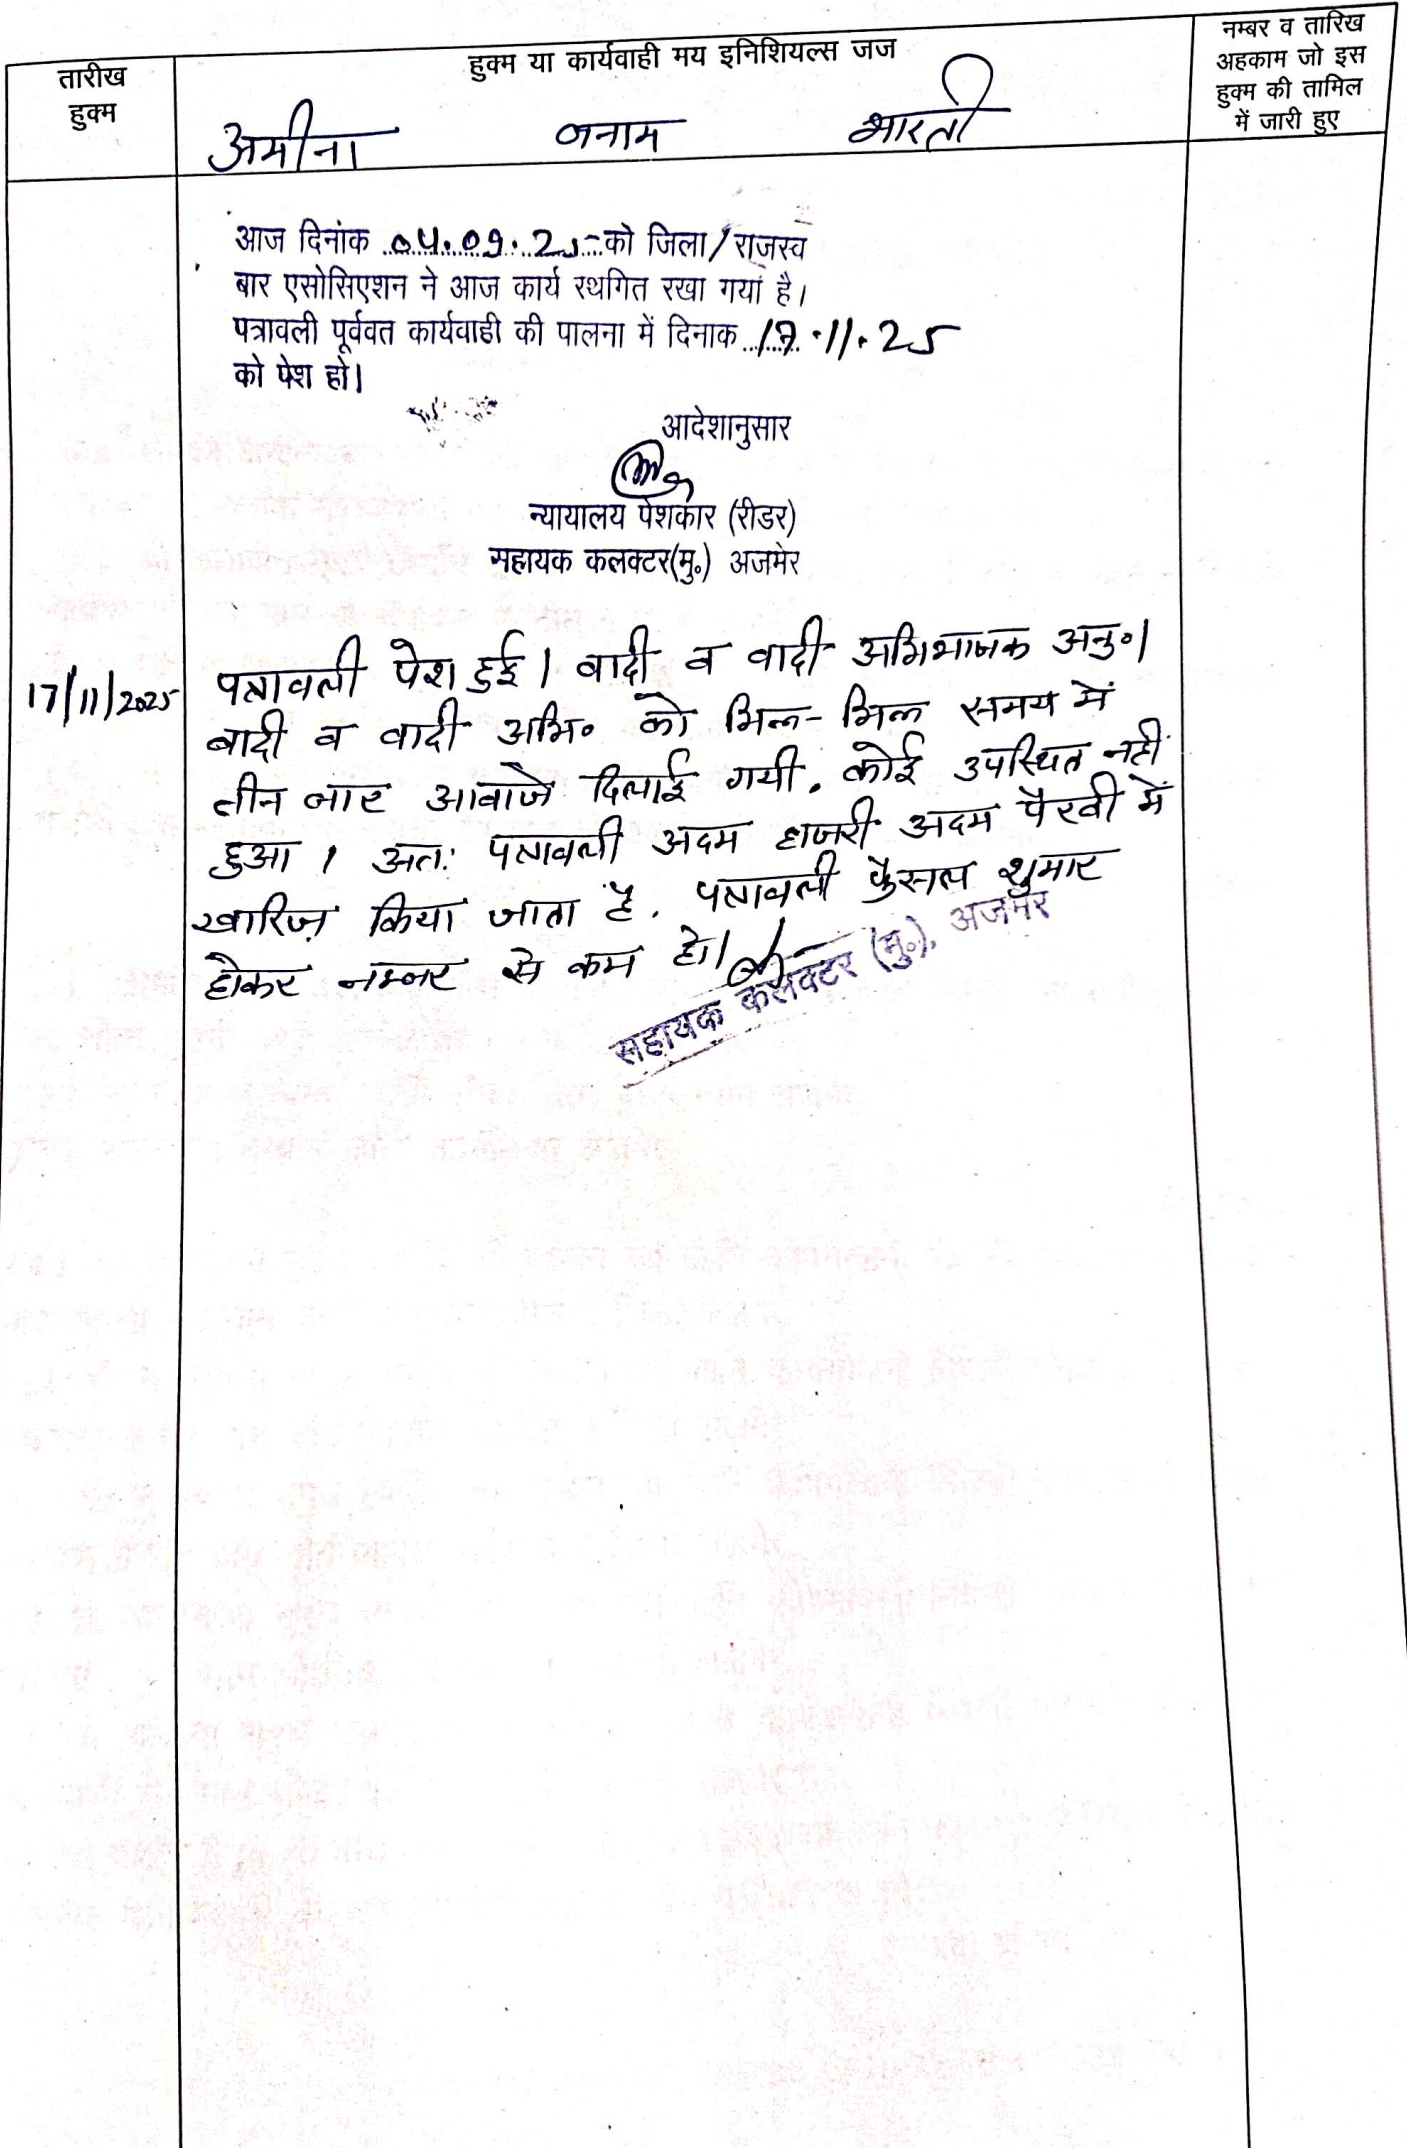 तारीख
हुक्म
हुक्म या कार्यवाही मय इनिशियल्स जज
नम्बर व तारिख
अहकाम जो इस
हुक्म की तामिल
में जारी हुए
अमीना बनाम भारती
आज दिनांक 04.09.25 को जिला/राजस्व
बार एसोसिएशन ने आज कार्य स्थगित रखा गया है।
पत्रावली पूर्ववत कार्यवाही की पालना में दिनाक 17.11.25
को पेश हो।
आदेशानुसार
न्यायालय पेशकार (रीडर)
सहायक कलक्टर(मु०) अजमेर
17/11/2025
पत्रावली पेश हुई। वादी व वादी अभिभाषक अनु०।
वादी व वादी अभि० को भिन्न-भिन्न समय में
तीन बार आवाजे दिलाई गयी. कोई उपस्थित नहीं
हुआ। अतः पत्रावली अदम हाजरी अदम पैरवी में
खारिज़ किया जाता है. पत्रावली फैसल शुमार
होकर नम्बर से कम हो।
सहायक कलक्टर (मु०), अजमेर